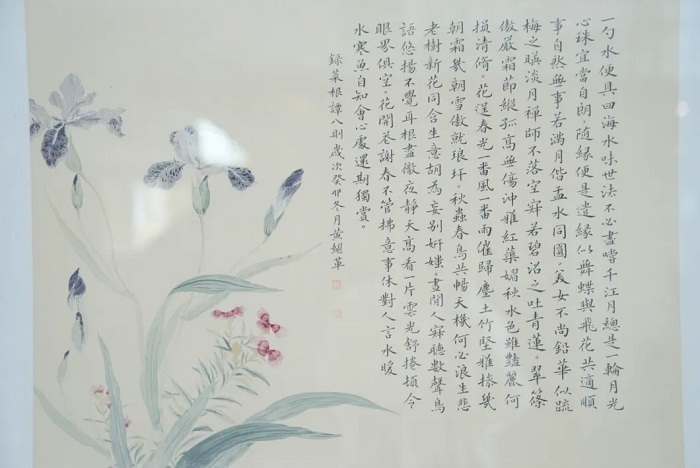 一勺水便具四海水味世法不必盡嘗千江月總是一輪月光
心珠宜當自朗隨緣便是遣緣似舞蝶與飛花共適順
事自然無事若滿月偕盂水同圓。美女不尚鉛華似疏
梅之暎淡月禪師不落空寂若碧沼之吐青蓮。翠篠
傲嚴霜節縱孤高無傷沖雅紅蕖媚秋水色雖豔麗何
損清脩。花逞春光一番風一番雨催歸塵土竹堅雅操幾
朝霜幾朝雪傲就琅玕。秋蟲春鳥共暢天機何必浪生悲
老樹新花同含生意胡為妄別妍媸。晝閒人寂聽數聲鳥
語悠揚不覺耳根盡徹夜靜天高看一片雲光舒捲頓令
眼界俱空。花開花謝春不管拂意事休對人言水暖
水寒魚自知會心處還期獨賞。
錄菜根譚八則歲次癸卯冬月黃繼華